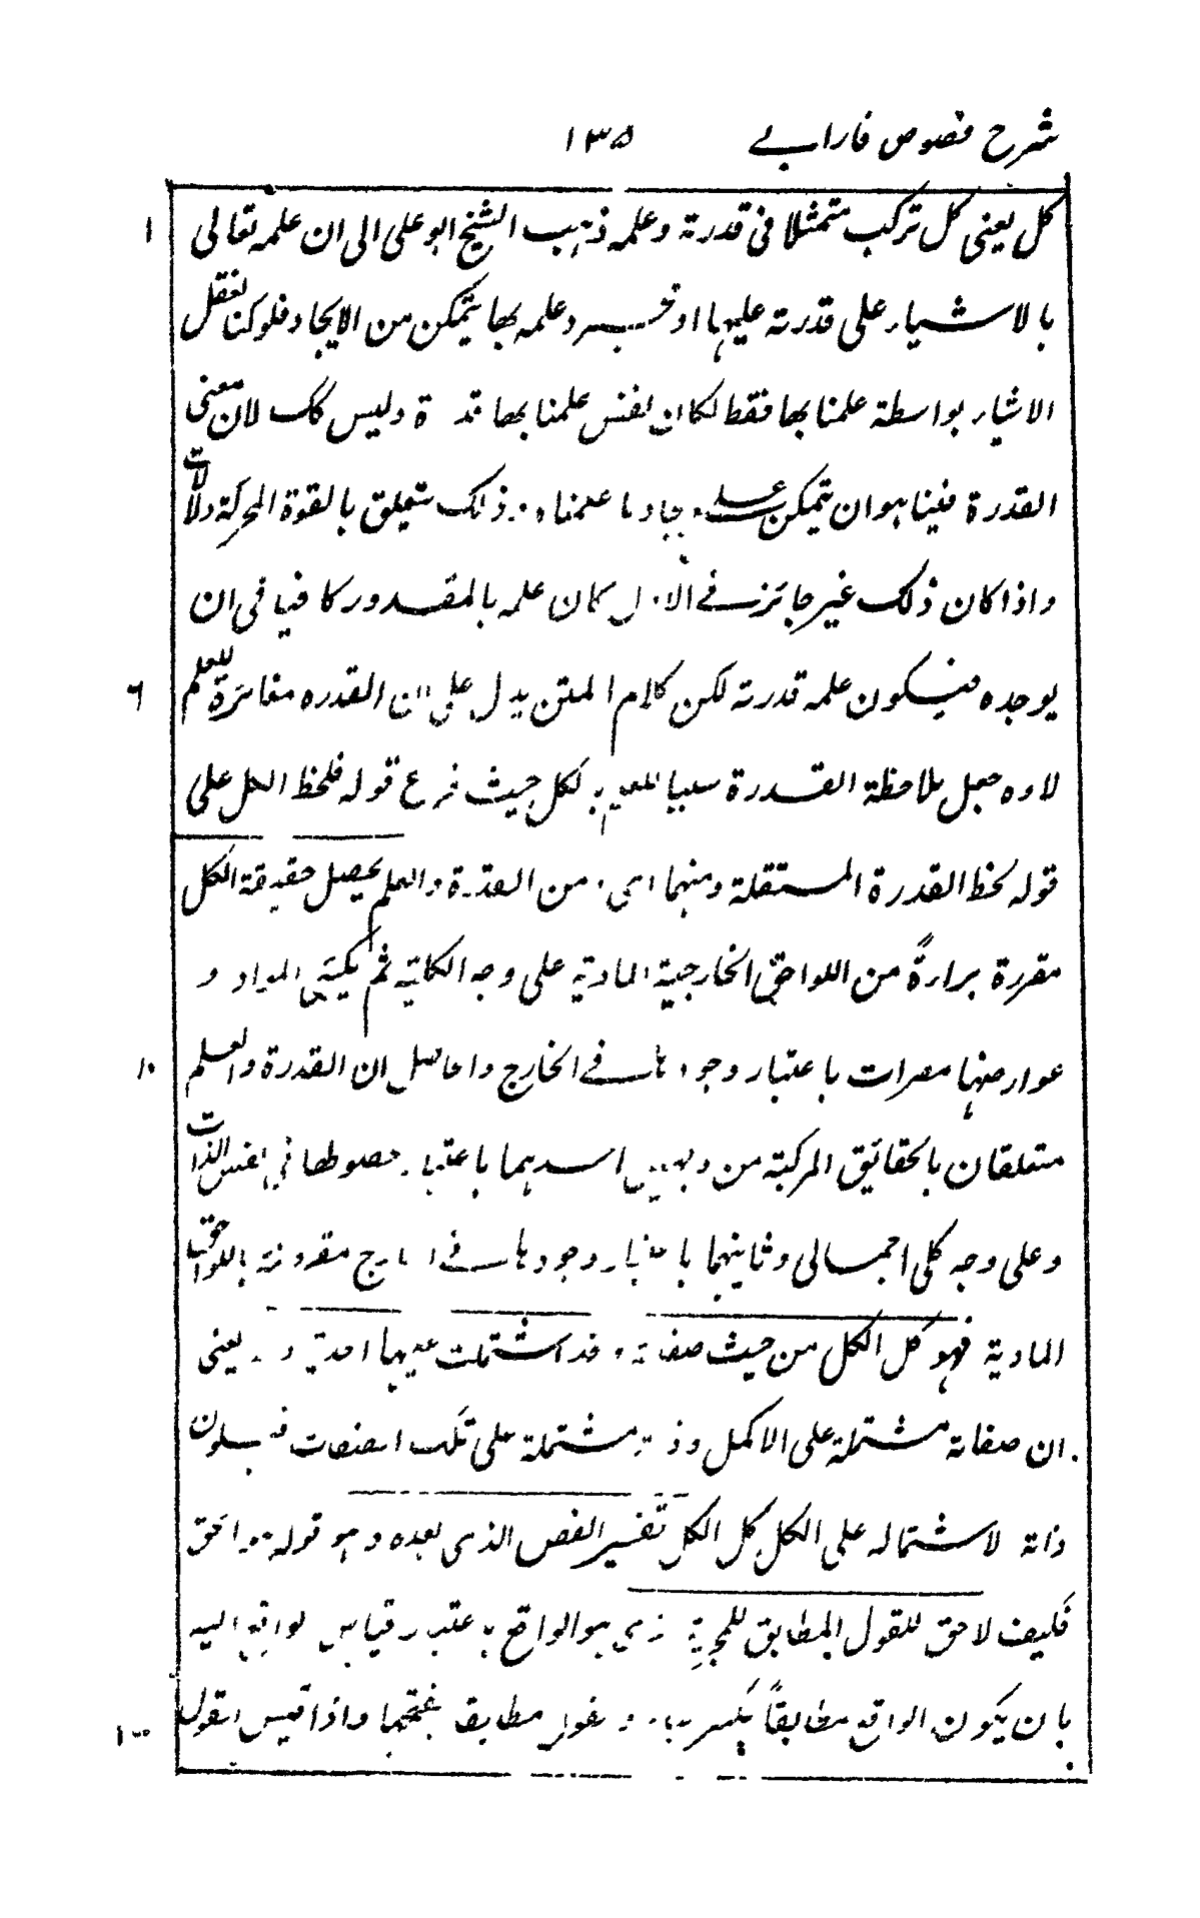 شرح فصوص فارابے ١٣٥
١ كل يعنى كل تركب متمثلا فى قدرته و علمه ذهب الشيخ ابو على الى ان علمه تعالى
بالاشياء على قدرته عليها اذ علمه بها يتمكن من الايجاد فلو كنا نفعل
الاشياء بواسطة علمنا بها فقط لكان نفس علمنا بها قدرة و ليس كك لان معنى
القدرة فينا هو ان يتمكن ايجاد ما علمناه و ذلك متعلق بالقوة المحركة والآلات
و اذا كان ذلك غير جائز فے الاول كان علمه بالمقدور كافيا فى ان
٦ يوجده فيكون علمه قدرته لكن كلام المتن يدل على ان القدره مغائرة للعلم
لانه جعل ملاحظة القدرة سببا للعلم بالكل حيث فرع قوله فلحظ الكل على
قوله لحظ القدرة المستقلة و منهما اى من القدرة والعلم يحصل حقيقة الكل
مقررة مبراةً من اللواحق الخارجية المادية على وجه الكلية ثم يكتسى المواد و
١٠ عوارضها باعتبار وجودها فے الخارج والحاصل ان القدرة والعلم
متعلقان بالحقائق المركبة من وجهين احدهما باعتبار حصولها فى نفس الذات
و على وجه كلى اجمالى و ثانيهما باعتبار وجودها فے الخارج مقرونة باللواحق
المادية فهو كل الكل من حيث صفاته و قد اشتملت عليها احدية ذاته يعنى
ان صفاته مشتملة على الاكمل و ذاته مشتملة على تلك الصفات فيكون
ذاته لاشتماله على الكل كل الكل تفسير الفص الذى بعده و هو قوله هو الحق
فكيف لاحق للقول المطابق للمخبر الذى هو الواقع باعتبار قياس الواقع اليه
١٧ بان يكون الواقع مطابقاً بكسر الباء و القول مطابق بفتحها و اذا قيس القول